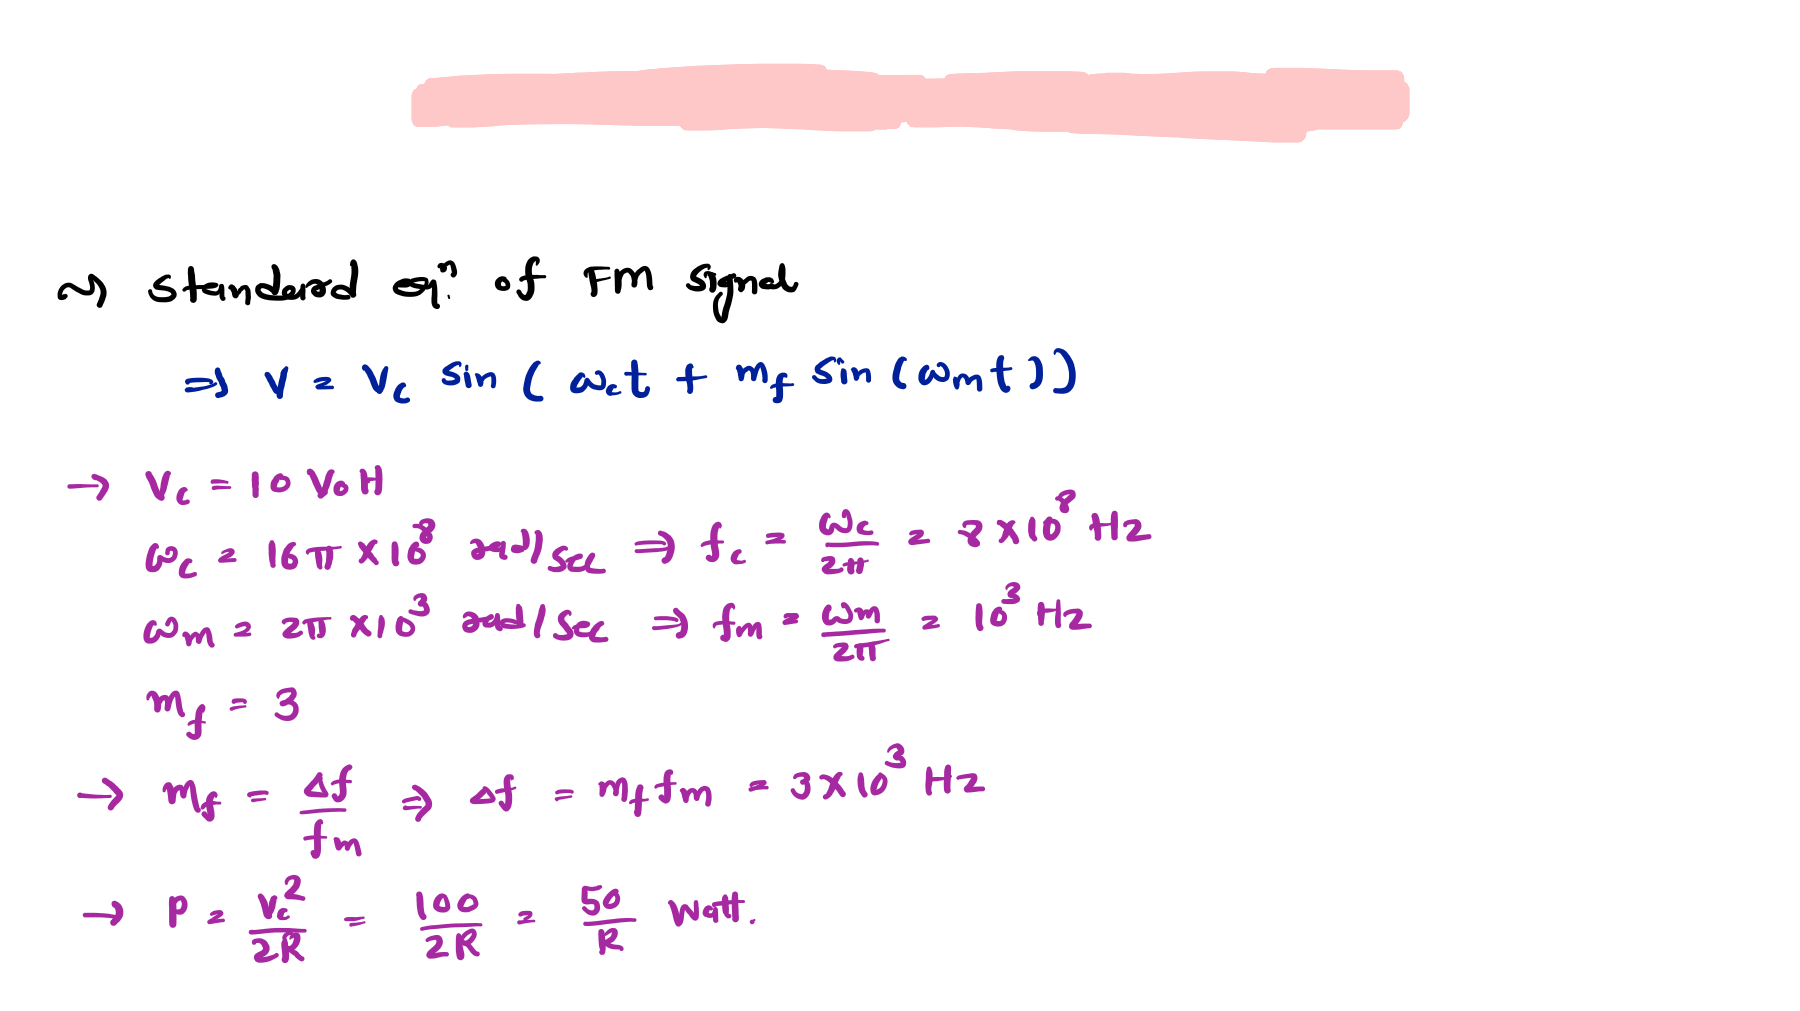 ~> Standard eqⁿ. of FM Signal
⇒ V = Vc Sin ( ωc t + mf Sin (ωm t ))
→ Vc = 10 Volt
ωc = 16π × 10⁸ rad/sec ⇒ fc = ωc/2π = 8 × 10⁸ Hz
ωm = 2π × 10³ rad/Sec ⇒ fm = ωm/2π = 10³ Hz
mf = 3
→ mf = Δf/fm ⇒ Δf = mf fm = 3 × 10³ Hz
→ P = Vc²/2R = 100/2R = 50/R Watt.